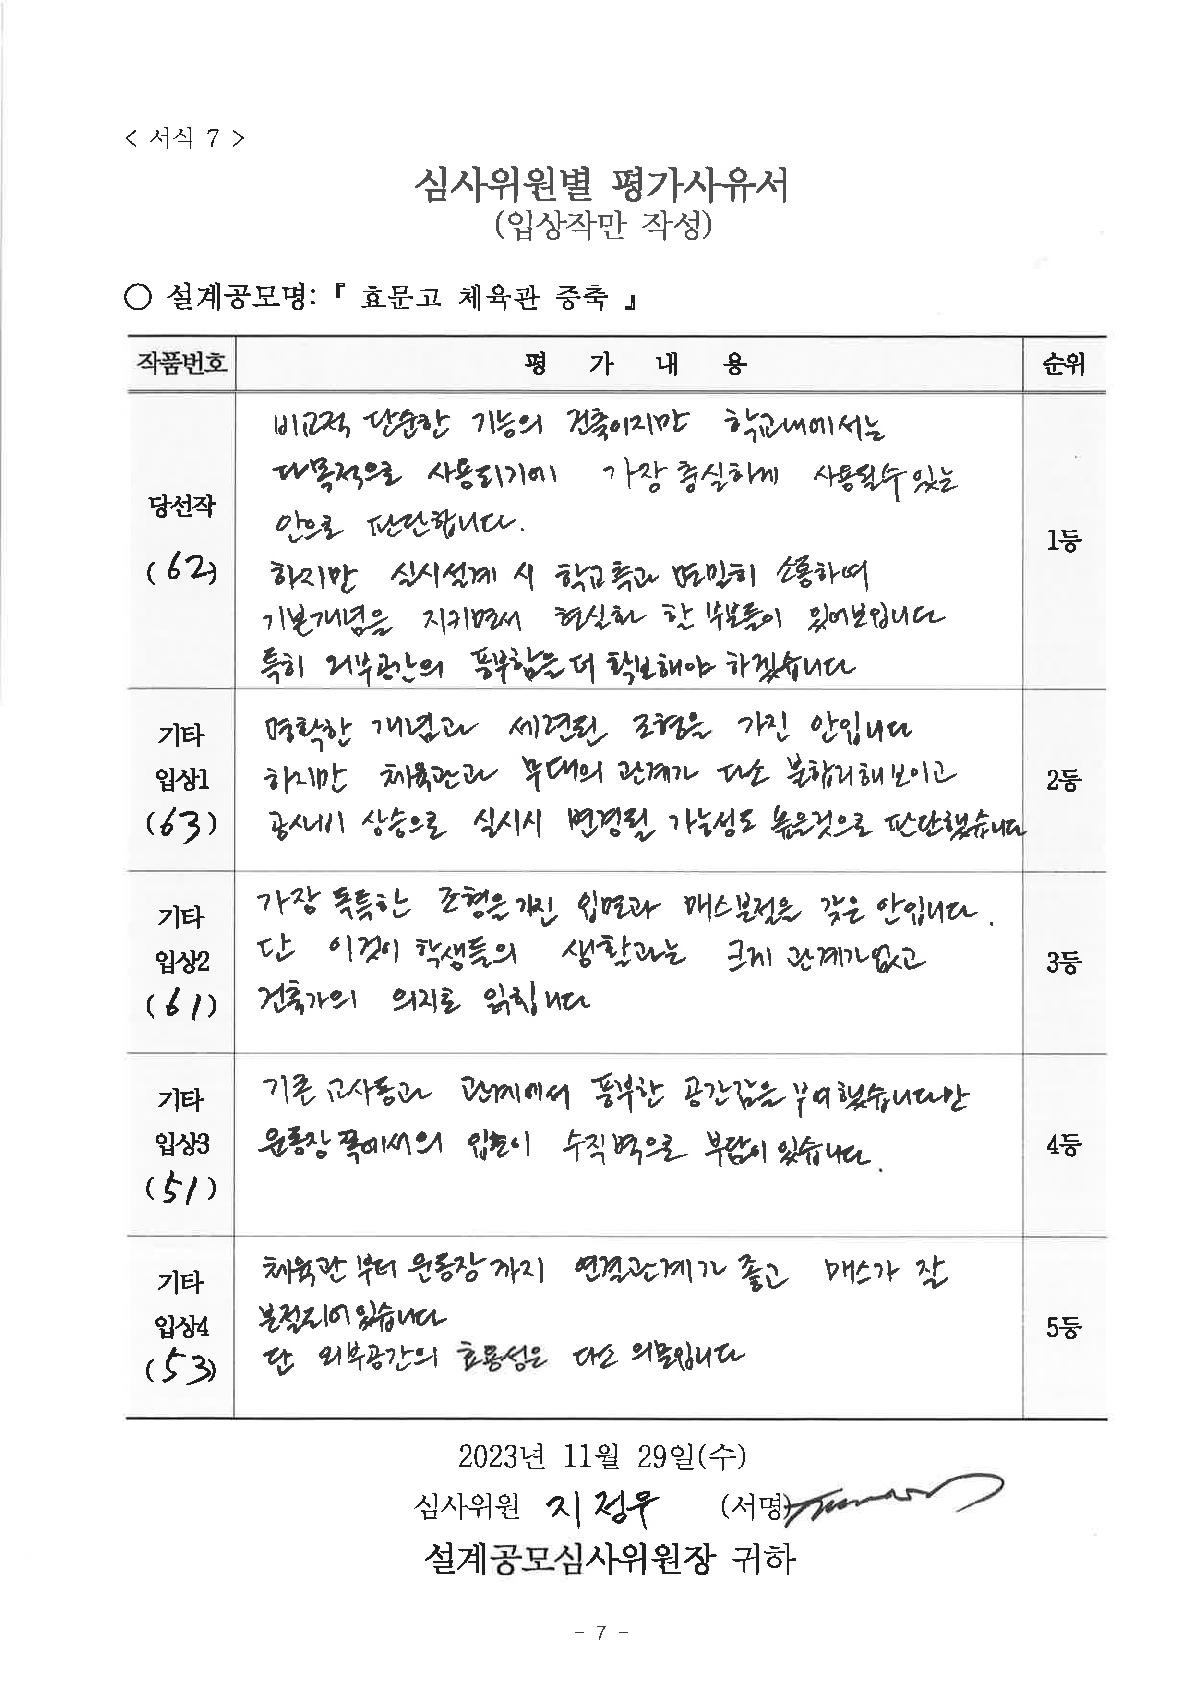 < 서식 7 >
심사위원별 평가사유서
(입상작만 작성)
○ 설계공모명: 『 효문고 체육관 증축 』
작품번호 평 가 내 용 순위
당선작
(62)
비교적 단순한 기능의 건축이지만 학교내에서는
다목적으로 사용되기에 가장 충실하게 사용될수 있는
안으로 판단합니다.
하지만 실시설계 시 학교측과 면밀히 소통하며
기본개념을 지키면서 현실화 할 부분들이 있어보입니다
특히 외부공간의 풍부함을 더 확보해야 하겠습니다
1등
기타
입상1
(63)
명확한 개념과 세련된 조형을 가진 안입니다
하지만 체육관과 무대의 관계가 다소 불합리해보이고
공사비 상승으로 실시시 변경될 가능성도 높은것으로 판단했습니다
2등
기타
입상2
(61)
가장 독특한 조형을 가진 입면과 매스분절을 갖은 안입니다.
단 이것이 학생들의 생활과는 크게 관계가 없고
건축가의 의지로 읽힙니다
3등
기타
입상3
(51)
기존 교사동과 관계에서 풍부한 공간감을 부여했습니다만
운동장 쪽에서의 입면이 수직벽으로 부담이 있습니다.
4등
기타
입상4
(53)
체육관 부터 운동장 까지 연결관계가 좋고 매스가 잘
분절되어있습니다
단 외부공간의 효용성은 다소 의문입니다
5등
2023년 11월 29일(수)
심사위원 지정우 (서명)
설계공모심사위원장 귀하
- 7 -